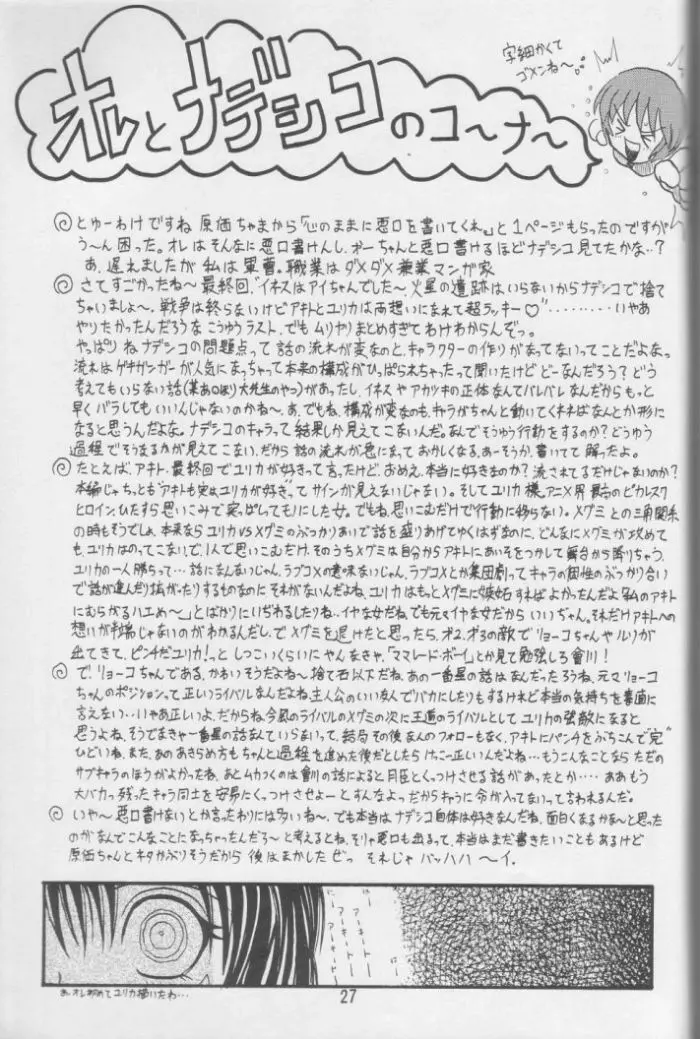 オレとナデシコのコ〜ナ〜
字細かくて
ゴメンね〜。。
とゅーわけですね 原価ちゃまから「心のままに悪口を書いてくれ。」と1ページもらったのですが
う〜ん困った。オレはそんなに悪口書けんし、ボーちゃんと悪口書けるほどナデシコ見てたかな..?
あ、遅れましたが 私は軍曹。職業はダメダメ兼業マンガ家
さてすごかったね〜最終回、"イネスはアイちゃんでした〜火星の遺跡はいらないからナデシコで捨て
ちゃいましょ〜、戦争は終らないけどアキトとユリカは両想いになれて超ラッキー♡"………いやあ
やりたかったんだろうなこうゆうラスト、でもムリヤリまとめすぎてわけわからんぞっ。
やっぱりねナデシコの問題点って話の流れが変なのと、キャラクターの作りがなってないってことだよなっ
流れはゲキガンガーが人気になっちゃって本来の構成がひっぱられちゃったって聞いたけどどーなんだろう?どう
考えてもいらない話(某あ○ほり大先生のやつ)があったし、イネスやアカツキの正体なんてバレバレなんだからもっと
早くバラしてもいいんじゃないのかね〜あ、でもね、構成が変なのも、キャラがちゃんと動いてくれればなんとか形に
なると思うんだよな。ナデシコのキャラって結果しか見えてこないんだ。なんでそうゆう行動をするのか?どうゆう
過程でそうなるかが見えてこない、だから話の流れが急になっておかしくなる、あーそうか、書いてて解ったよ。
たとえば、アキト、最終回でユリカが好きって言ったけど、おめえ、本当に好きなのか?流されてるだけじゃないのか?
本編じゃちっとも"アキトも実はユリカが好き"ってサインが見えないじゃない。そしてユリカ様、アニメ界最古のピカレスク
ヒロイン、ひたすら思いこみで突っぱしてモノにした女。でもね、思いこむだけで行動に移らない。メグミとの三角関係
の時もそうでしょ、本来ならユリカVSメグミのぶっかりあいで話を盛りあげてゆくはずなのに、どんなにメグミが攻めて
も、ユリカはのってこないで、1人で思いこむだけ、そのうちメグミは自分からアキトにあいそをつかして舞台から降りちゃう、
ユリカの一人勝ちって…話になんないじゃん、ラブコメの意味ないじゃん、ラブコメとか集団劇ってキャラの個性のぶっかり合い
で話が進んだり拡がったりするものなのにそれがないんだよね、ユリカはもっとメグミに嫉妬すればよかったんだよ「私のアキト
にむらがるハエめ〜」とばかりにいぢわるしたりね‥イヤな女だね、でも元々イヤな女だからいいぢゃん。それだけアキトへの
想いが半端じゃないのがわかるんだし。で、メグミを退けたと思ったら、オ2、オ3の敵でリョーコちゃんやルリが
出てきて、ピンチだユリカ!っとしつこいくらいにやんなきゃ、「ママレード・ボーイ」とか見て勉強しろ會川!
で、リョーコちゃんである、かわいそうだよね〜捨て石以下だね、あの一番星の話はなんだったろうね、元々リョーコ
ちゃんのポジションって正しいライバルなんだよね、主人公のいい友人でバカにしたりもするけれど本当の気持ちを素直に
言えない…いやあ正しいよ、だからね、今風のライバルのメグミの次に王道のライバルとしてユリカの強敵になると
思うよね、そうでまきゃ一番星の話なんていらないって、結局その後なんのフォローもなく、アキトにパンチをぶちこんで"完"
ひどいね、また、あのあきらめ方もちゃんと過程を進めた後だとしたらけっこー正しいんだよね…もうこんなことならただの
サブキャラのほうがよかったね、あとムカつくのは會川の話によると月臣とくっつけさせる話があったとか…ああもう
大バカっ残ったキャラ同士を安易にくっつけさせよーとすんなよっだからキャラに命が入ってないって言われるんだ。
いや〜悪口書けないとか言ったわりには多いね〜、でも本当はナデシコ自体は好きなんだね、面白くなるかな〜と思った
のがなんでこんなことになっちゃったんだろ〜と考えるとね、そりゃ悪口も出るって、本当はまだ書きたいこともあるけど
原価ちゃんとネタかぶりそうだから後はまかしたぜっ それじゃ バッハハ 〜イ.
はー
アーキートー
はー
アーキートー
にー
アーキートー
あ、オレ初めてユリカ描いたわ…
27